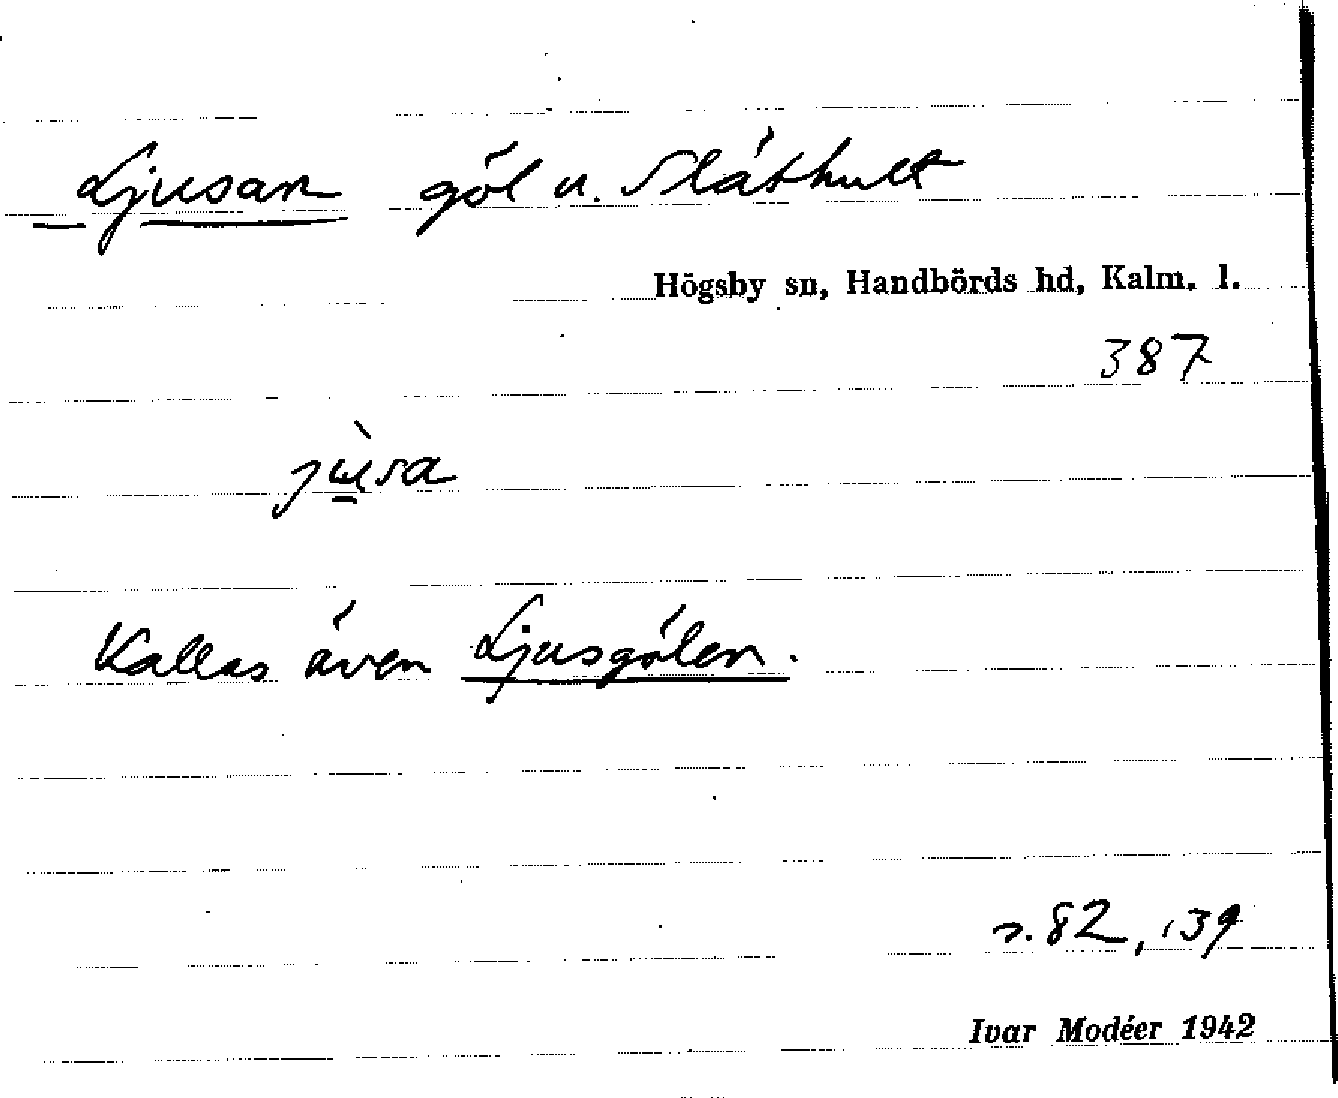 Ljusan göl u. Slåthult
Högsby sn, Handbörds hd, Kalm. l.
387
Kallas även Ljusgölen.
s. 82, 139
Ivar Modéer 1942